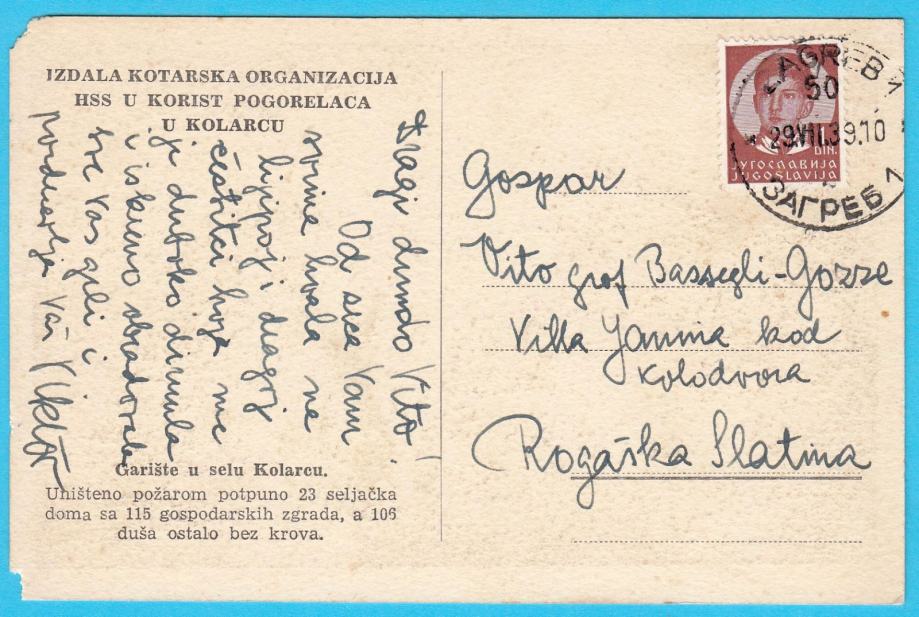 IZDALA KOTARSKA ORGANIZACIJA
HSS U KORIST POGORELACA
U KOLARCU
Dragi dundo Vito!
Od srca Vam
svima hvala na
lijepoj i dragoj
čestitci koja me
je duboko dirnula
i iskreno obradovala
sve Vas grli i
pozdravlja Vaš
Garište u selu Kolarcu.
Uništeno požarom potpuno 23 seljačka
doma sa 115 gospodarskih zgrada, a 106
duša ostalo bez krova.
ZAGREB 1
50
29.VIII.39.10
DIN.
ЈУГОСЛАВИЈА
JUGOSLAVIJA
ЗАГРЕБ 1
Gospar
Vito grof Bassegli-Gozze
Villa Janina kod
kolodvora
Rogaška Slatina